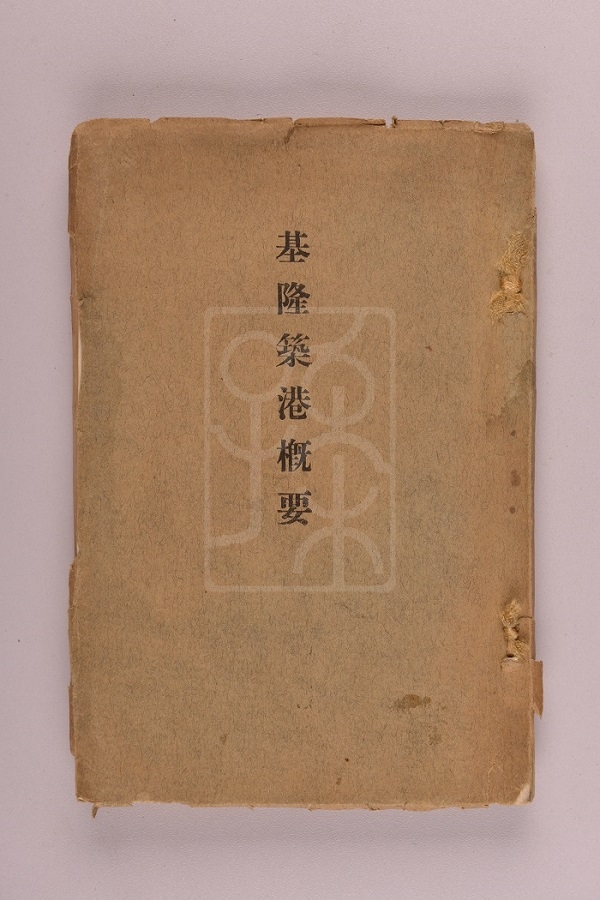 基隆築港概要